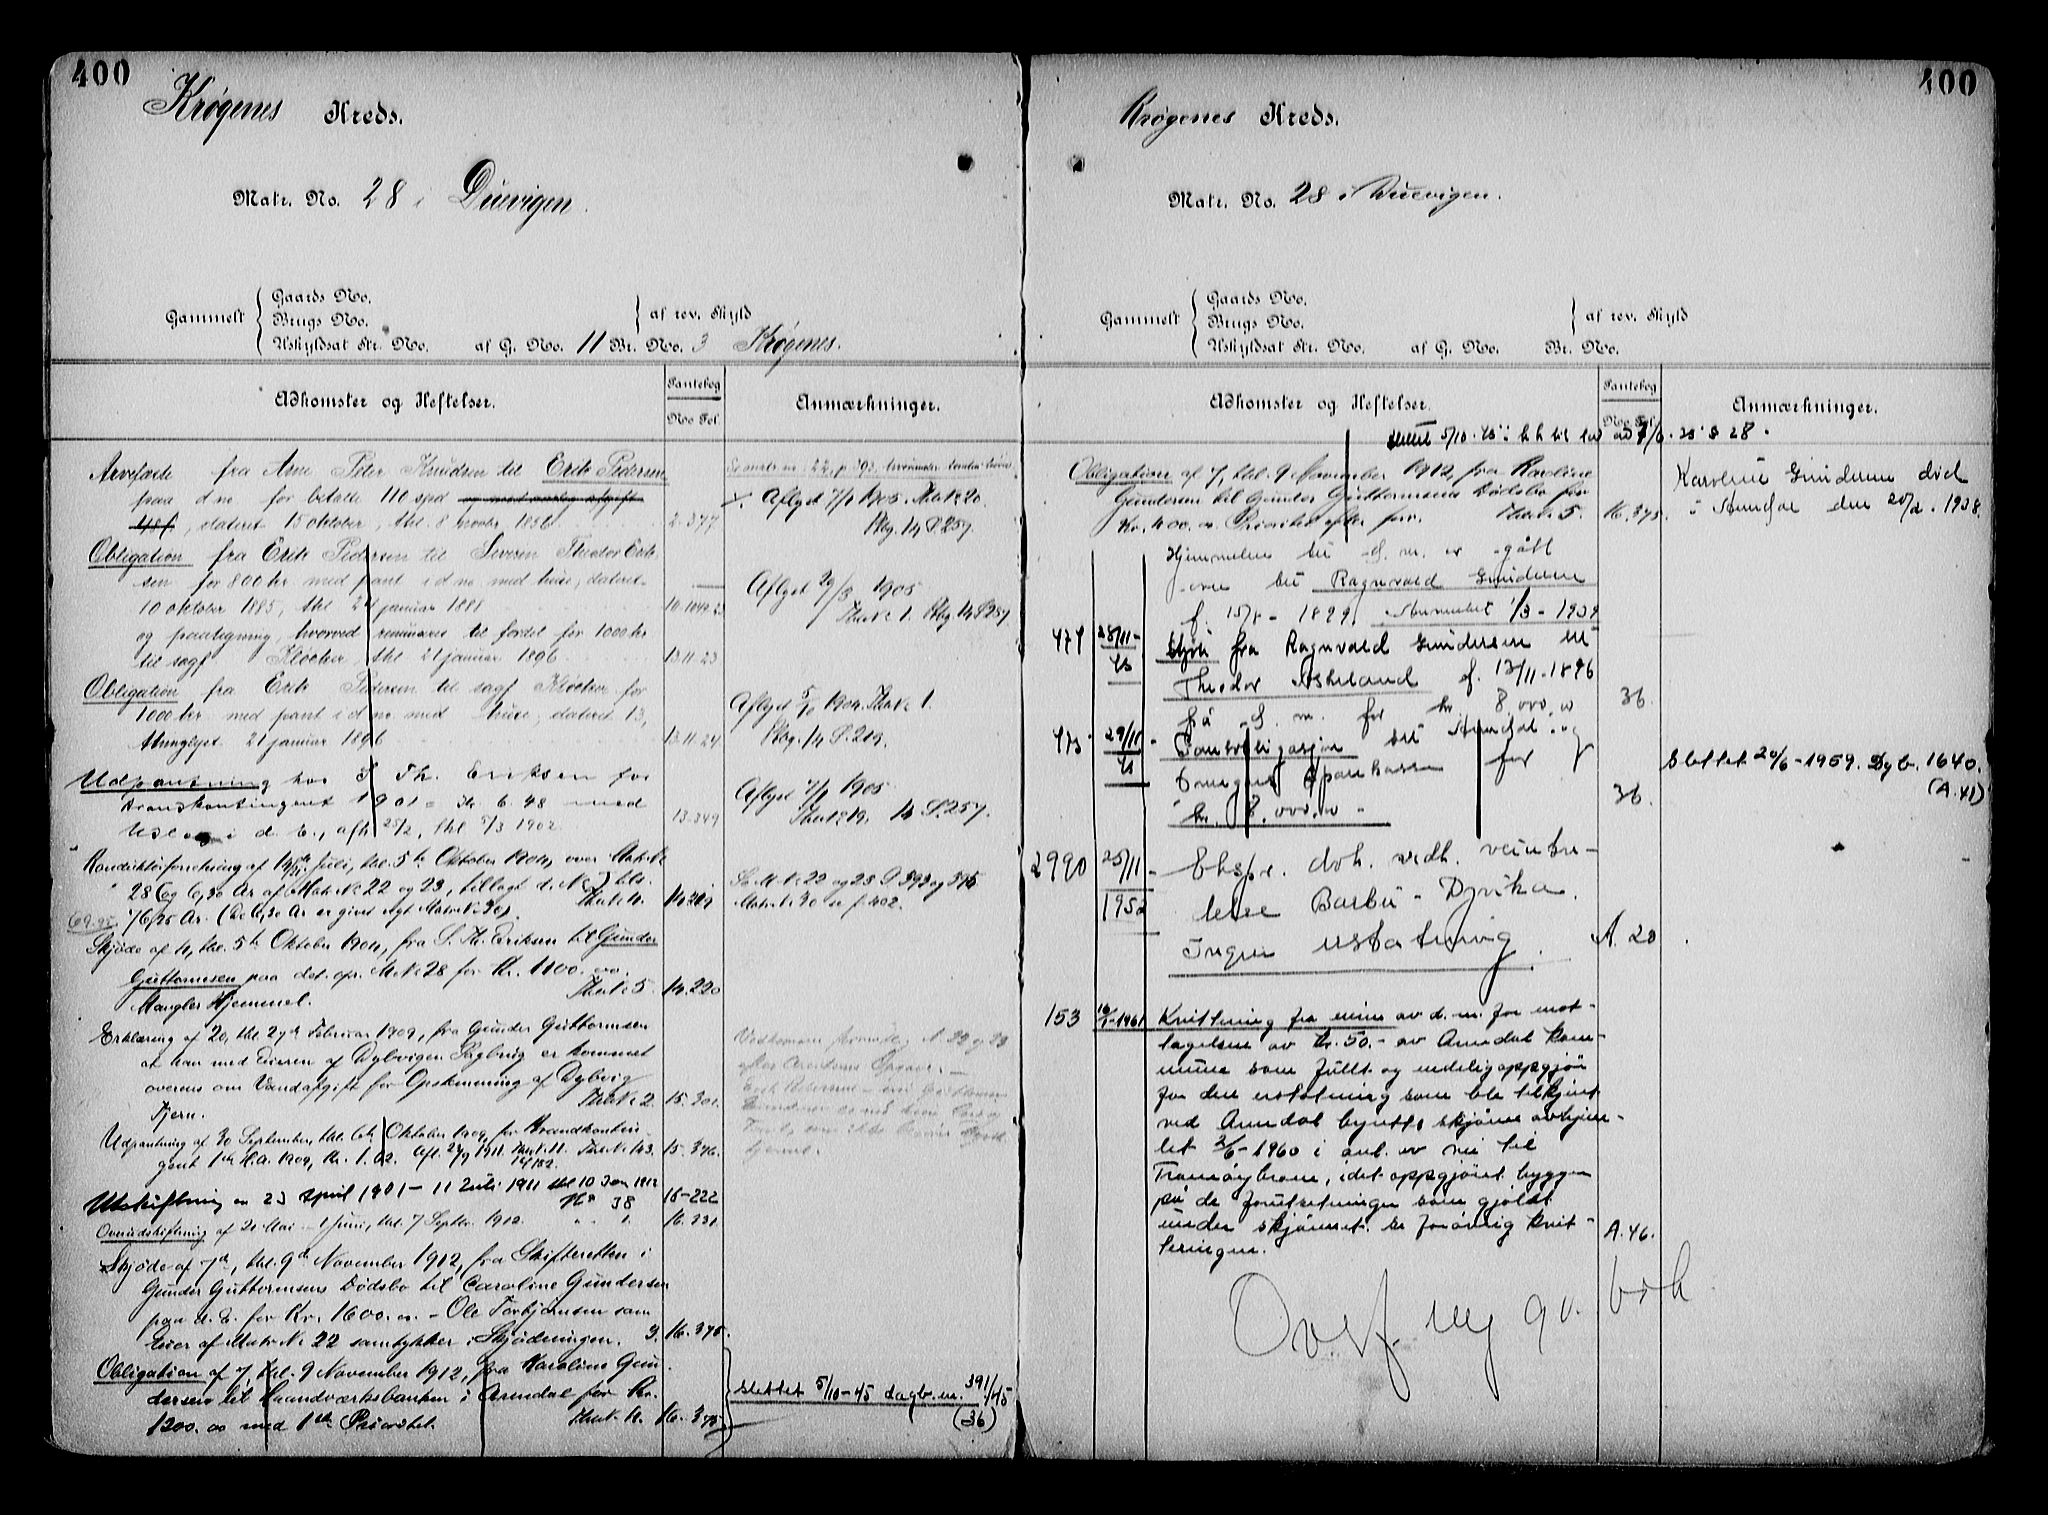 400
Krøgenes Kreds.
Matr. No. 28 i Duevigen.
Gammelt
Gaards No.
Brugs No.
af rev. Skyld
Uskyldsat Str. No. af G. No. 11 Br. No. 3 Krøgenes.
Adkomster og Heftelser.
Pantebog
No Fol.
Anmærkninger.
Arvefæste fra Arne Peter Knudsen til Erik Pedersen
paa d no for betalte 110 spd og med
dateret 15 oktober, thl. 8 novbr. 1856
2-377
Aflyst 7/1 1905. Thr. № 20.
Pbg. 14 S. 257.
Obligation fra Erik Pedersen til Severin Theodor Erik-
sen for 800 kr. med pant i d no med huse, dateret
10 oktober 1885, thl 24 januar 1888
10.1042.23
Aflyst 29/3 1905
Thr № 1. Pbg. 14 S 257
og paategning, hvorved renuncieres til fordel for 1000 kr
til sagf Klocker, thl 21 januar 1896
13.11.23
Obligation fra Erik Pedersen til sagf Klocker for
1000 kr. med pant i d no med huse, dateret 13,
thinglyst 21 januar 1896
13.11.24
Aflyst 5/10 1904. Thr № 1.
Pbog. 14 S. 219.
Udpantning hos S Th. Eriksen for
brandkontingent 1901 = Kr 6.48 med
i d. E., afh 25/2, thl 5/3 1902
13-349
Aflyst 7/1 1905
Thr № 19, 14 S. 257.
Konduktørforretning af 14/15 Juli, thl. 5te Oktober 1904, over Matr. №
28 (og 6,30 Ar af Matr № 22 og 23, tillagt d. №) bls.
69.95. 76,25 Ar. (De 6,30 Ar er givet eget Matr № 30).
Thr. № 4.
14.219
Se M. № 22 og 23 S 393 og 395
Matr. № 30 se f. 402.
Skjøde af 4, thl. 5te Oktober 1904, fra S. Th. Eriksen til Gunder
Guttormsen paa det opr. M. № 28 for Kr. 1100.00.
Mangler Hjemmel. Thr № 5.
14.220
Erklæring af 20, thl 27de Februar 1909, fra Gunder Guttormsen
at han med Eieren af Dybvigen Sagbrug er kommet
overens om Vandafgift for Opdemning af Dybvig
Tjern. Thr № 2.
15.301
Udpantning af 30 September, thl. 6te Oktober 1909, for Brandkontin-
gent 1ste H.A. 1909, Kr. 1.02. Afl. 27/9 1911. Thr № 11. Thr № 143.
14/182.
15.376.
Utskiftning av 23 April 1901 - 11 Juli 1911 thl 10 Jan 1912
№ 38
16-222
Overudskiftning af 21 Mai - 1 Juni, thl. 7 Septbr. 1912. " " 1.
16.331
Skjøde af 7de, thl. 9de November 1912, fra Skifteretten i
Gunder Guttormsens Dødsbo til Caroline Gundersen
paa d. E. for Kr. 1600.00. - Ole Torbjørnsen som
Eier af Matr № 22 samtykker i Skjødningen. 3.
16.375.
Obligation af 7, thl. 9 November 1912, fra Karoline Gun-
dersen til Haandværksbanken i Arendal for Kr.
1200.00 med 1ste Prioritet. Thr № 4.
16.375
slettet 5/10-45 dagb. nr. 391/45
(36)
400
Krøgenes Kreds.
Matr. No. 28 i Duevigen.
Gammelt
Gaards No.
Brugs No.
af rev. Skyld
Uskyldsat Str. No. af G. No. Br. No.
Adkomster og Heftelser.
Pantebog
No Fol.
Anmærkninger.
slettet 5/10.45 i h h til lov av 7/6.35 § 28.
Obligation af 7, thl. 9 November 1912, fra Karoline
Gundersen til Gunder Guttormsens Dødsbo for
Kr. 400.00. Prioritet efter forr. Thr № 5.
16.375.
Karoline Gundersen død
i Arendal den 20/2. 1938.
Hjemmelen til d. m. er gått
over til Ragnvald Gundersen
f. 15/8 - 1899. Anmeldt 1/3-1939
474 28/11-45 Skjøte fra Ragnvald Gundersen til
Theodor Askeland f. 13/11-1896
på d. m. for kr. 8 000,00
36.
475 29/11-45 Pantobligasjon til Arendal og
Omegns Sparekasse for
kr. 8.000,00.
36.
Slettet 20/6-1959. Dgb. 1640.
(A.41)
2990 25/11-1952 Ekspr. dok. vedk. veiutbe-
delse Barbu - Dyvika.
Ingen erstatning.
A. 20
153 16/1-1961 Kvittering fra eieren av d. m. for mot-
tagelsen av kr. 50.- av Arendal kom-
mune som fullt og endelig oppgjør
for den erstatning som ble tilkjent
ved Arendal byretts skjønn avhjem-
let 2/6-1960 i anl. av vei til
Tromøybroen, idet oppgjøret bygger
på de forutsetninger som gjaldt
under skjønnet. Se forøvrig kvit-
teringen.
A.46.
Overf. ny gr. bok